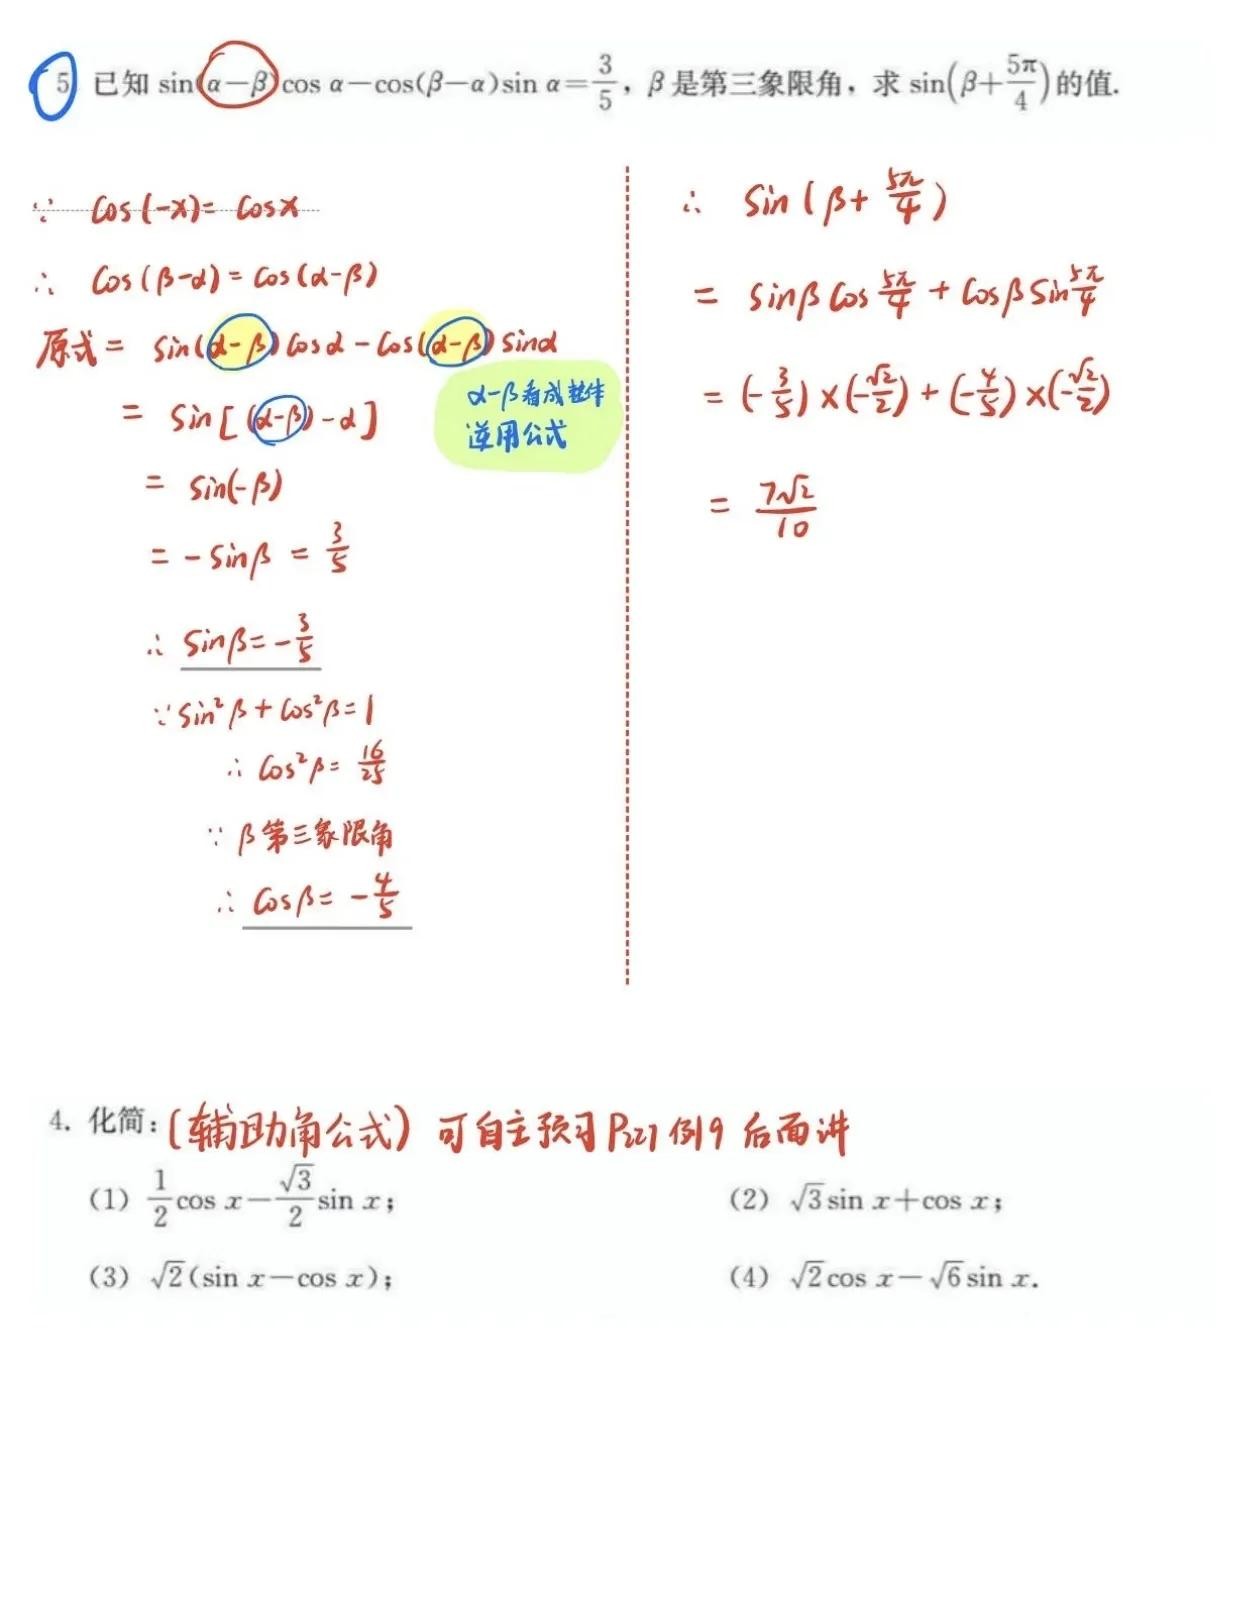 5 已知 sin(α－β)cos α－cos(β－α)sin α＝3/5，β 是第三象限角，求 sin(β＋5π/4)的值.
∵ Cos(-x)= Cosx
∴ Cos(β-α)= Cos(α-β)
原式= Sin(α-β)Cosα-Cos(α-β)Sinα
α-β看成整体
逆用公式
= Sin[(α-β)-α]
= Sin(-β)
= -Sinβ = 3/5
∴ Sinβ=-3/5
∵Sin²β+Cos²β=1
∴ Cos²β= 16/25
∵ β第三象限角
∴ Cosβ= -4/5
∴ Sin(β+5π/4)
= SinβCos5π/4+CosβSin5π/4
= (-3/5)×(-√2/2)+(-4/5)×(-√2/2)
= 7√2/10
4. 化简：(辅助角公式) 可自主预习 P227 例9 后面讲
(1) 1/2 cos x－√3/2 sin x；
(2) √3sin x＋cos x；
(3) √2(sin x－cos x)；
(4) √2cos x－√6sin x.